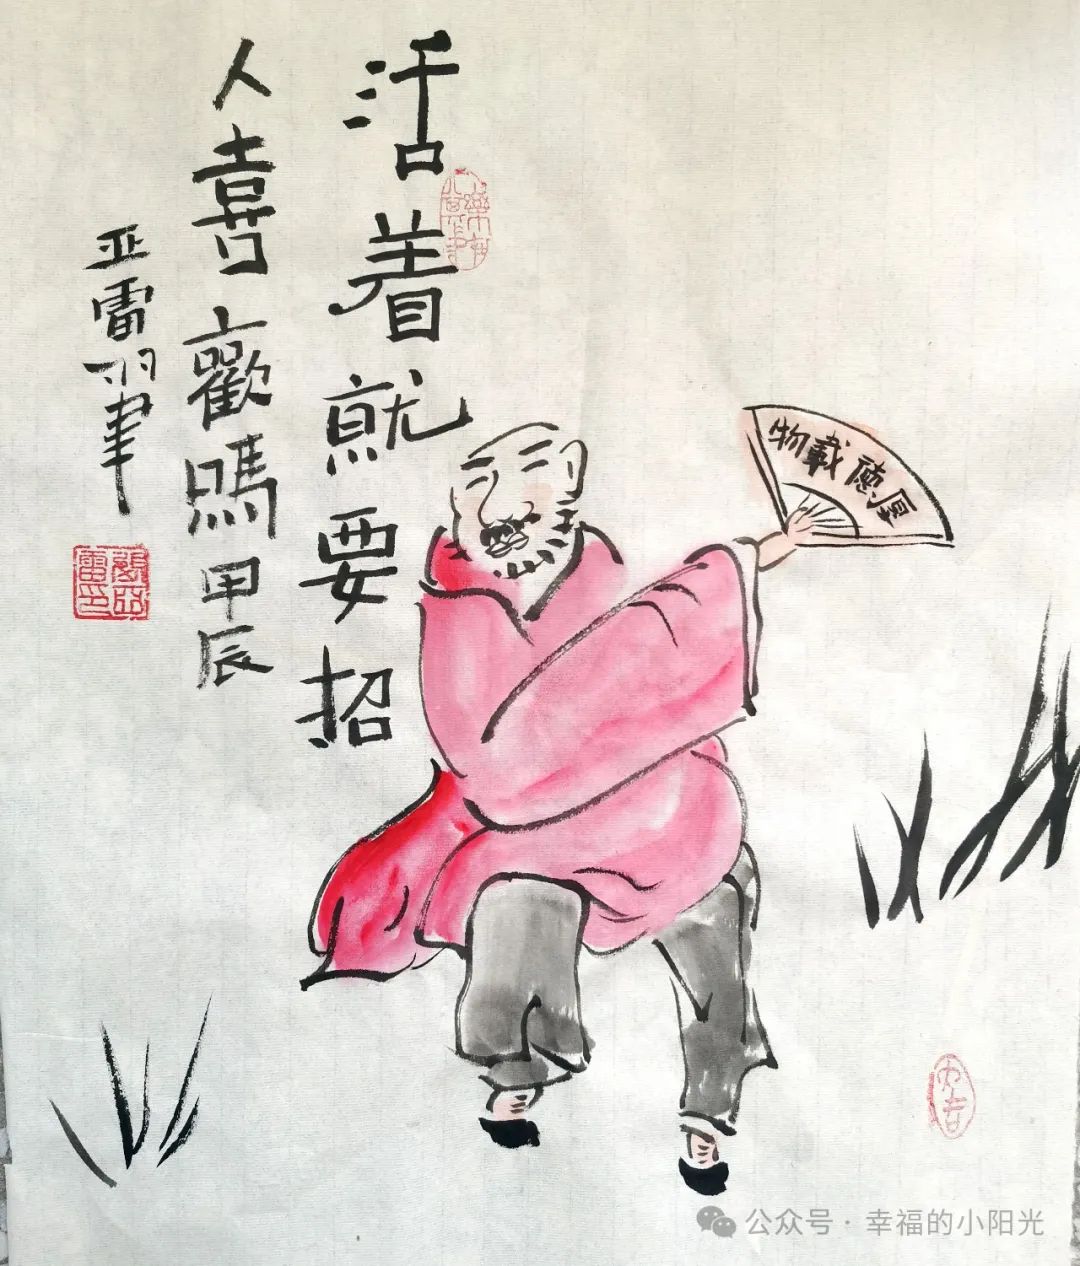 活着就要招
人喜歡嗎甲辰
亚雷
厚德載物
公众号·幸福的小阳光